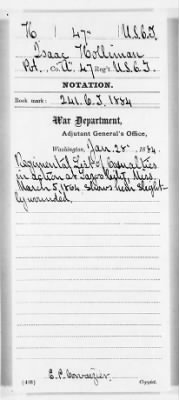 H | 47 | U.S.C.T.
Isaac Holliman
Pvt., Co. A. 47 Reg't U.S.C.T.
NOTATION.
Book mark: 241. C.T. 1884
War Department,
Adjutant General's Office,
Washington, Jan. 28 1884.
Regimental List of Casualties
in action at Yazoo City, Miss.
March 5, 1864 shows him slight-
ly wounded.
Copyist.